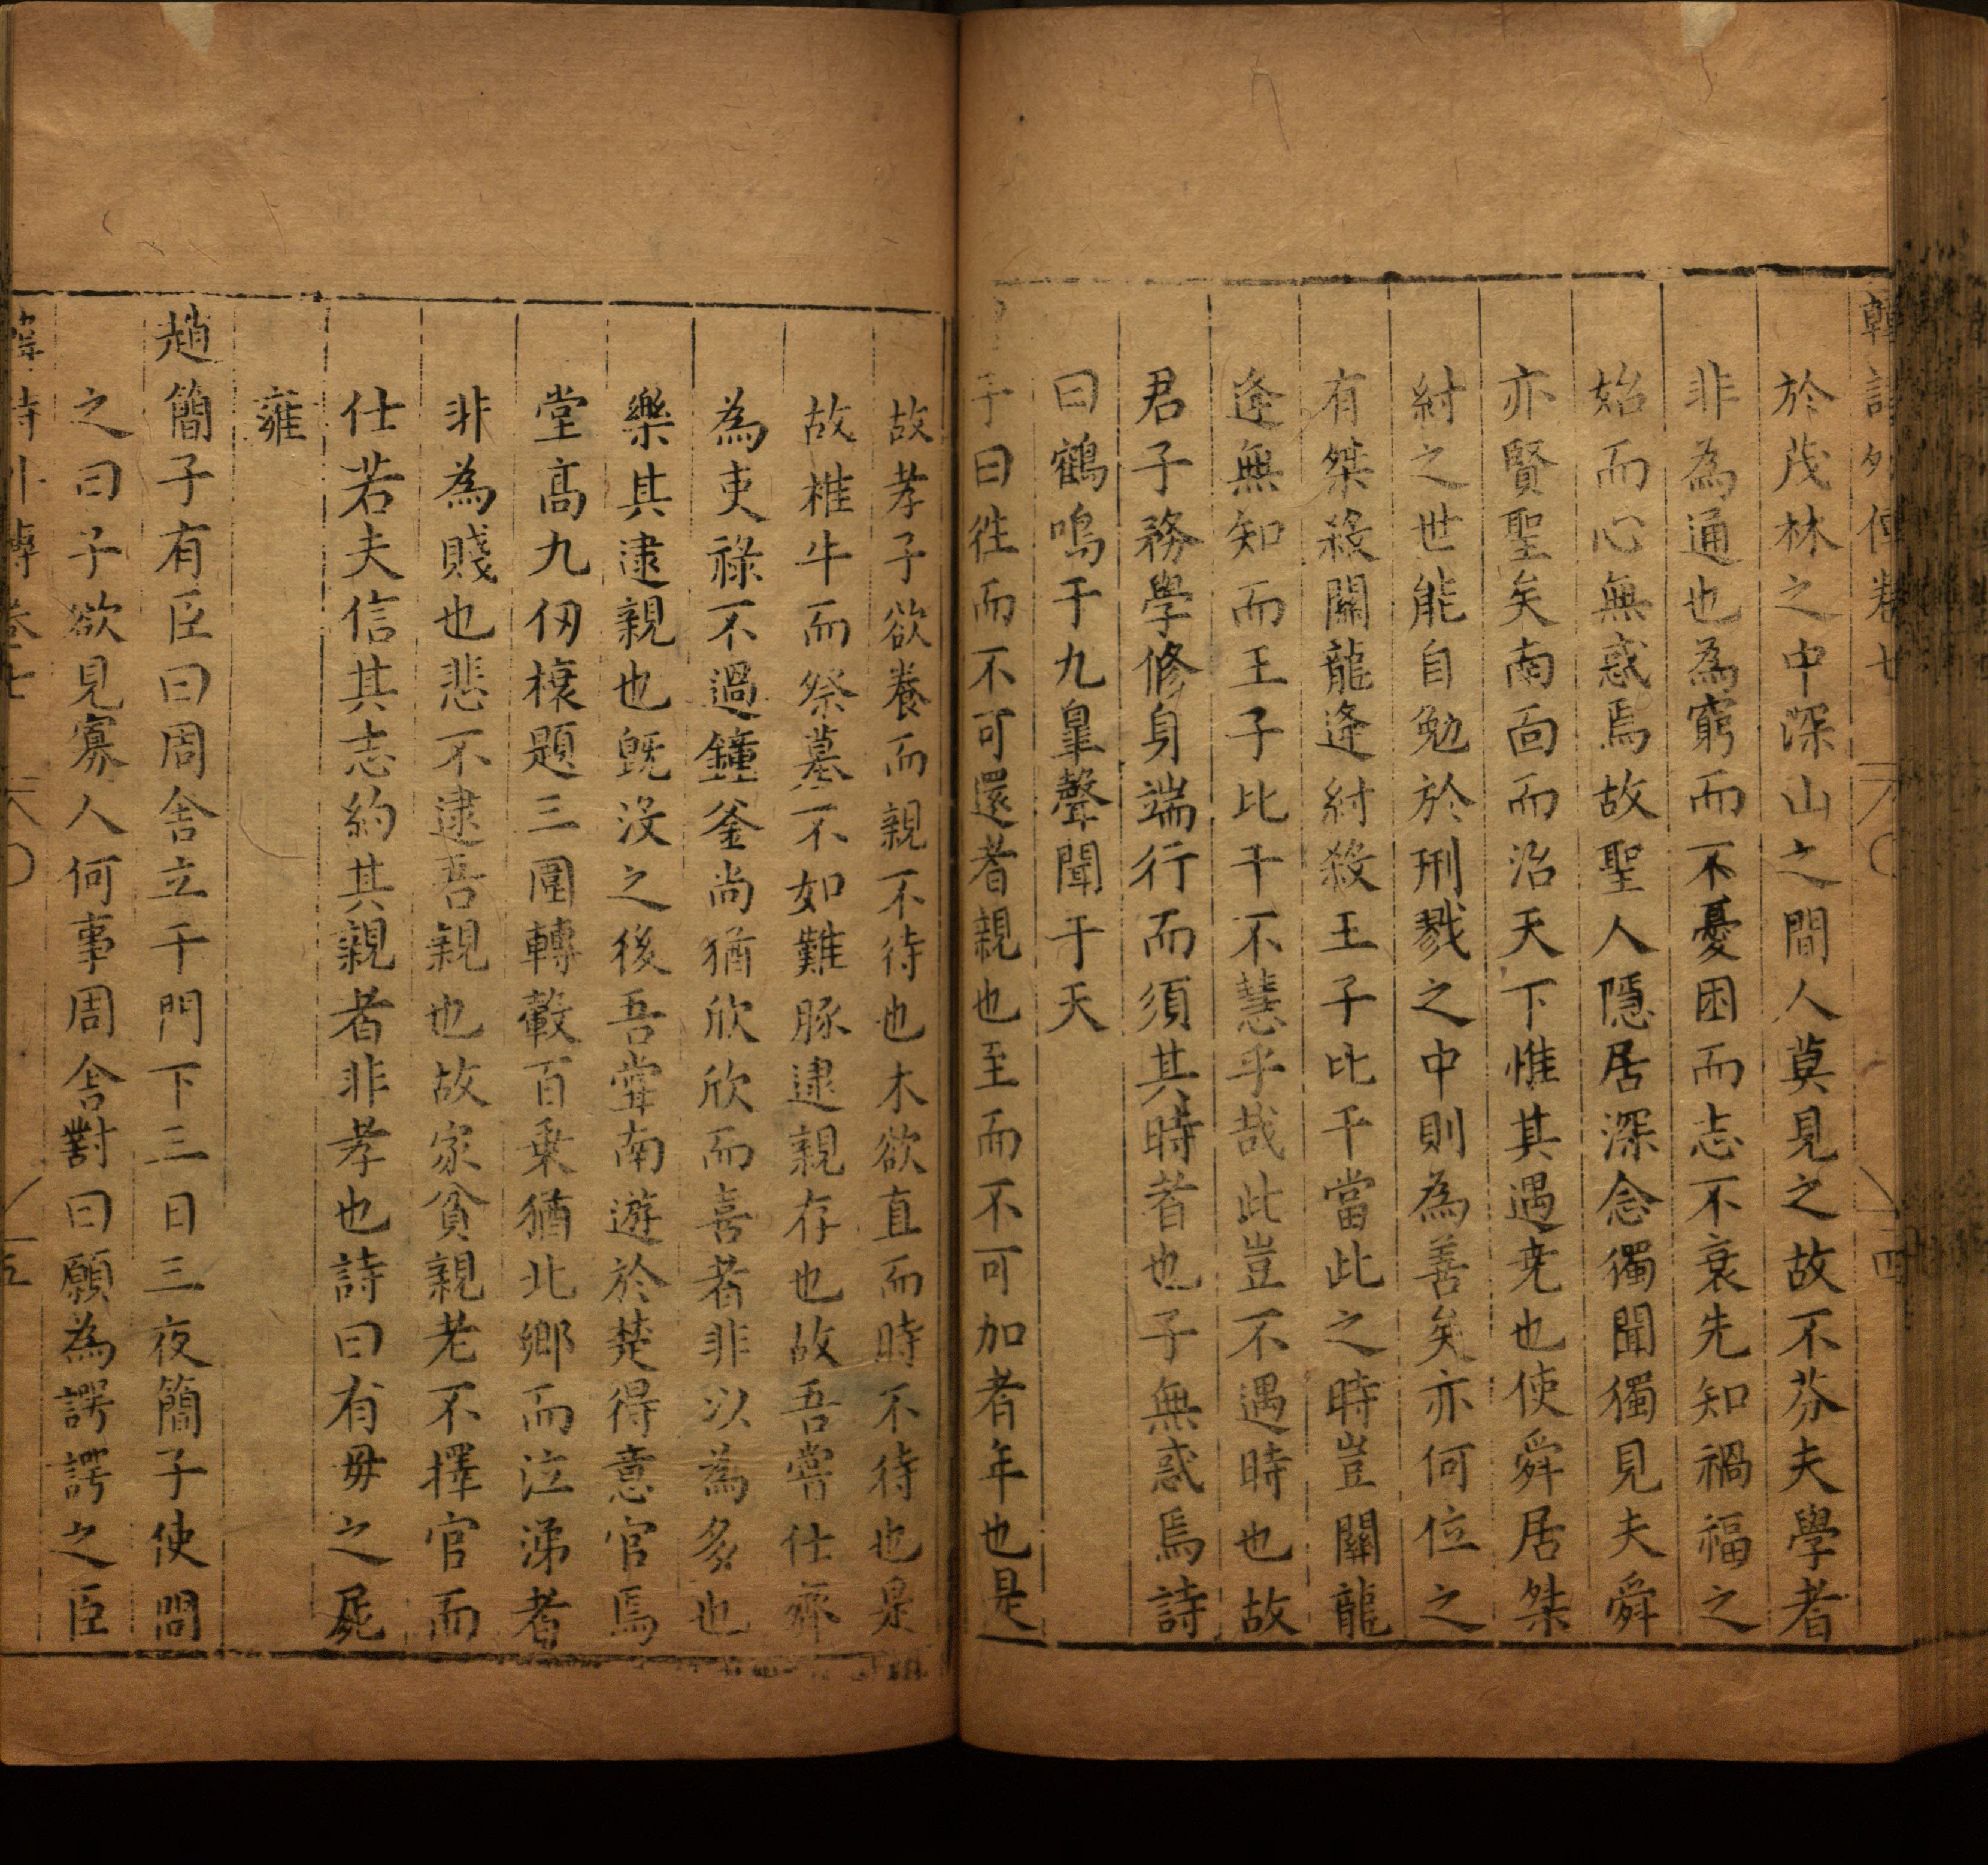 韓詩外傳卷七 四
於茂林之中深山之間人莫見之故不芬夫學者
非為通也為窮而不憂困而志不衰先知禍福之
始而心無惑焉故聖人隱居深念獨聞獨見夫舜
亦賢聖矣南面而治天下惟其遇尭也使舜居桀
紂之世能自勉於刑戮之中則為善矣亦何位之
有桀殺關龍逢紂殺王子比干當此之時豈關龍
逢無知而王子比干不慧乎哉此豈不遇時也故
君子務學修身端行而須其時者也子無惑焉詩
曰鶴鳴于九皐聲聞于天
子曰徃而不可還者親也至而不可加者年也是
故孝子欲養而親不待也木欲直而時不待也是
故椎牛而祭墓不如雞豚逮親存也故吾嘗仕齊
為吏祿不過鐘釜尚猶欣欣而喜者非以為多也
樂其逮親也旣沒之後吾嘗南遊於楚得意官焉
堂高九仞榱題三圍轉轂百乗猶北鄉而泣涕者
非為賤也悲不逮吾親也故家貧親老不擇官而
仕若夫信其志約其親者非孝也詩曰有毋之屍
雍
趙簡子有臣曰周舍立千門下三日三夜簡子使問
之曰子欲見寡人何事周舍對曰願為諤諤之臣
韓詩外傳卷七 五